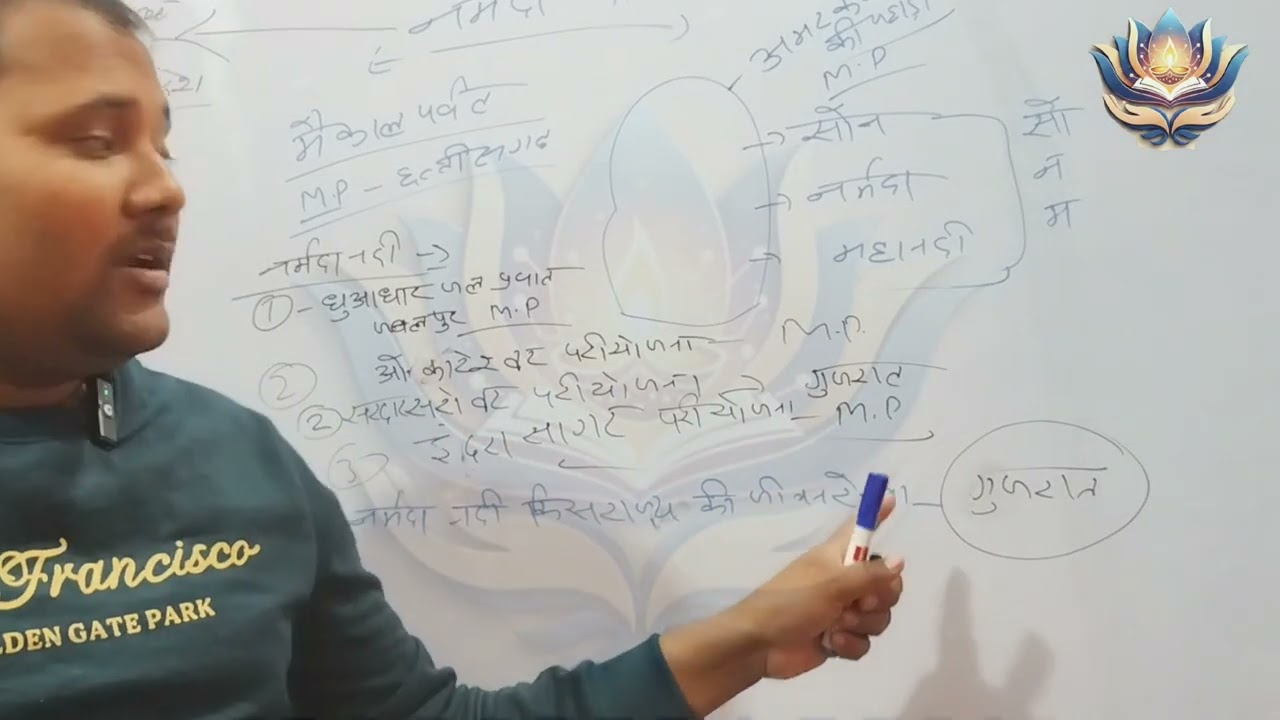 नर्मदा
अमरकं
की पहाड़ी
M.P
मैकाल पर्वत
M.P - छत्तीसगढ
→ सोन
→ नर्मदा
→ महानदी
सो
न
म
नर्मदा नदी →
① - धुआधार जल प्रपात
जबलपुर M.P
② ओंकारेश्वर परीयोजना - M.P.
② सरदार सरोवर परीयोजना → गुजरात
③ इंदिरा सागर परीयोजना - M.P
नर्मदा नदी किस राज्य की जीवन रे - गुजरात
Francisco
LDEN GATE PARK